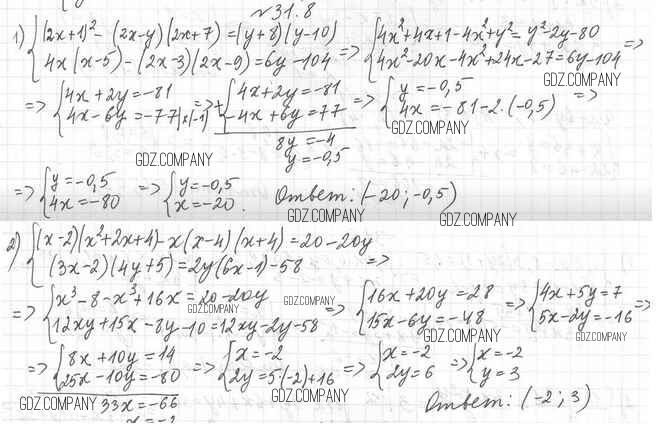 №31.8
1) {(2x+1)² - (2x-y)(2x+y) = (y+8)(y-10) {4x(x-5) - (2x-3)(2x-9) = 6y-104 => {4x²+4x+1-4x²+y² = y²-2y-80 {4x²-20x-4x²+24x-27 = 6y-104 =>
GDZ.COMPANY
=> {4x+2y=-81 {4x-6y=-77 |x(-1) => + {4x+2y=-81 {-4x+6y=77 => {y=-0,5 {4x=-81-2·(-0,5) =>
GDZ.COMPANY
8y=-4
GDZ.COMPANY
y=-0,5
=> {y=-0,5 {4x=-80 => {y=-0,5 {x=-20. Ответ: (-20; -0,5)
GDZ.COMPANY GDZ.COMPANY
2) {(x-2)(x²+2x+4) - x(x-4)(x+4) = 20-20y {(3x-2)(4y+5) = 2y(6x-1)-58 =>
=> {x³-8-x³+16x=20-20y {12xy+15x-8y-10=12xy-2y-58 => {16x+20y=28 {15x-6y=-48 => {4x+5y=7 {5x-2y=-16 =>
GDZ.COMPANY GDZ.COMPANY GDZ.COMPANY
=> {8x+10y=14 {25x-10y=-80 => {x=-2 {2y=5·(-2)+16 => {x=-2 {2y=6 => {x=-2 {y=3
GDZ.COMPANY 33x=-66 GDZ.COMPANY
Ответ: (-2; 3)
x=-2